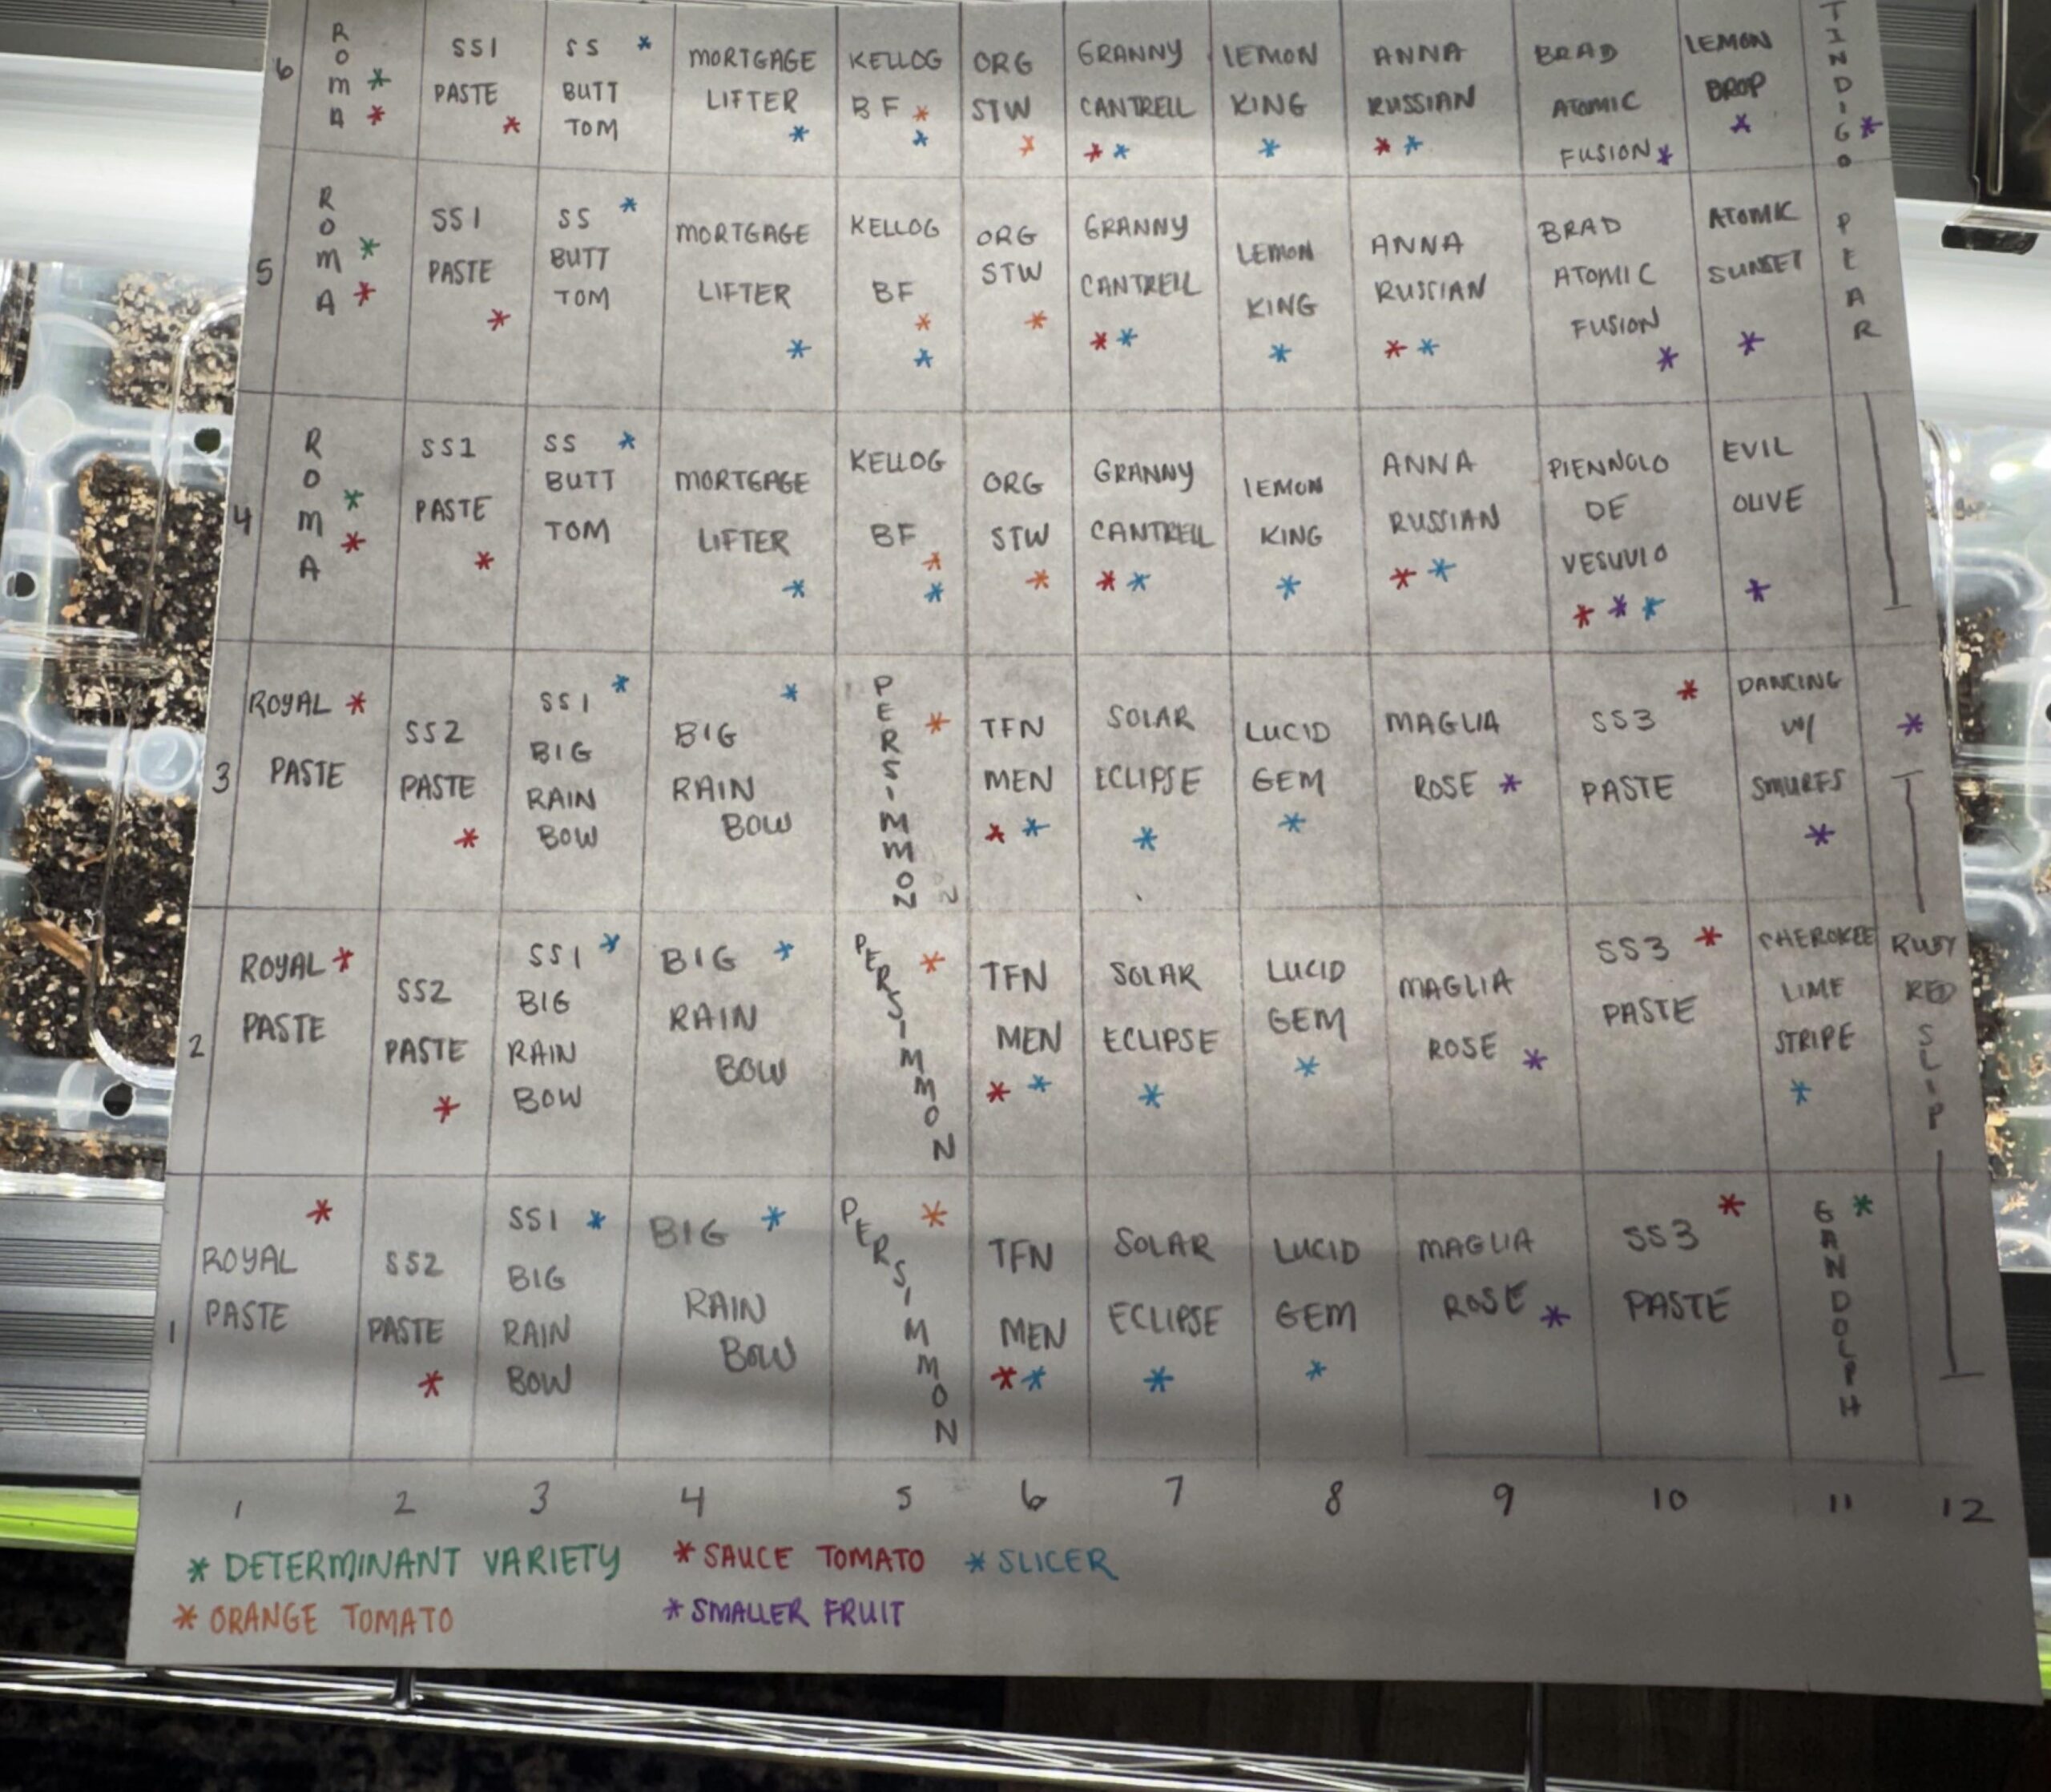 6
ROMA * *
SS1 PASTE *
SS * BUTT TOM
MORTGAGE LIFTER *
KELLOG BF * *
ORG STW *
GRANNY CANTRELL * *
LEMON KING *
ANNA RUSSIAN * *
BRAD ATOMIC FUSION *
LEMON DROP *
INDIGO * PEAR
5
ROMA * *
SS1 PASTE *
SS * BUTT TOM
MORTGAGE LIFTER *
KELLOG BF * *
ORG STW *
GRANNY CANTRELL * *
LEMON KING *
ANNA RUSSIAN * *
BRAD ATOMIC FUSION *
ATOMIC SUNSET *
4
ROMA * *
SS1 PASTE *
SS * BUTT TOM
MORTGAGE LIFTER *
KELLOG BF * *
ORG STW *
GRANNY CANTRELL * *
LEMON KING *
ANNA RUSSIAN * *
PIENNOLO DE VESUVIO * * *
EVIL OLIVE *
3
ROYAL * PASTE
SS2 PASTE *
SS1 * BIG RAIN BOW
* BIG RAIN BOW
PERSIMMON *
TFN MEN * *
SOLAR ECLIPSE *
LUCID GEM *
MAGLIA ROSE *
SS3 * PASTE
DANCING W/ SMURFS *
*
2
ROYAL * PASTE
SS2 PASTE *
SS1 * BIG RAIN BOW
BIG * RAIN BOW
PERSIMMON *
TFN MEN * *
SOLAR ECLIPSE *
LUCID GEM *
MAGLIA ROSE *
SS3 * PASTE
CHEROKEE LIME STRIPE *
RUBY RED SLIP
1
* ROYAL PASTE
SS2 PASTE *
SS1 * BIG RAIN BOW
BIG * RAIN BOW
PERSIMMON *
TFN MEN * *
SOLAR ECLIPSE *
LUCID GEM *
MAGLIA ROSE *
SS3 * PASTE
GANDOLPH *
1 2 3 4 5 6 7 8 9 10 11 12
* DETERMINANT VARIETY * SAUCE TOMATO * SLICER
* ORANGE TOMATO * SMALLER FRUIT
2